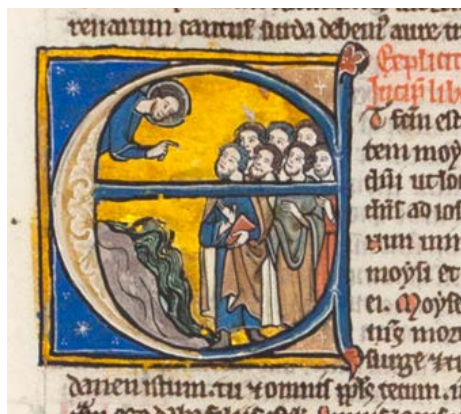 renarum cantuſ ſurda debem' aure tr
Explicit
Incip̄ lib
T fcm̄ eſt
tem moy
dn̄i ut lo
dn̄ſ ad ioſ
nun min
moyſi et
ei. Moyſe
mor
ſurge ⁊ tr
danen iſtum. tu ⁊ omniſ ppl̄s tecum. i